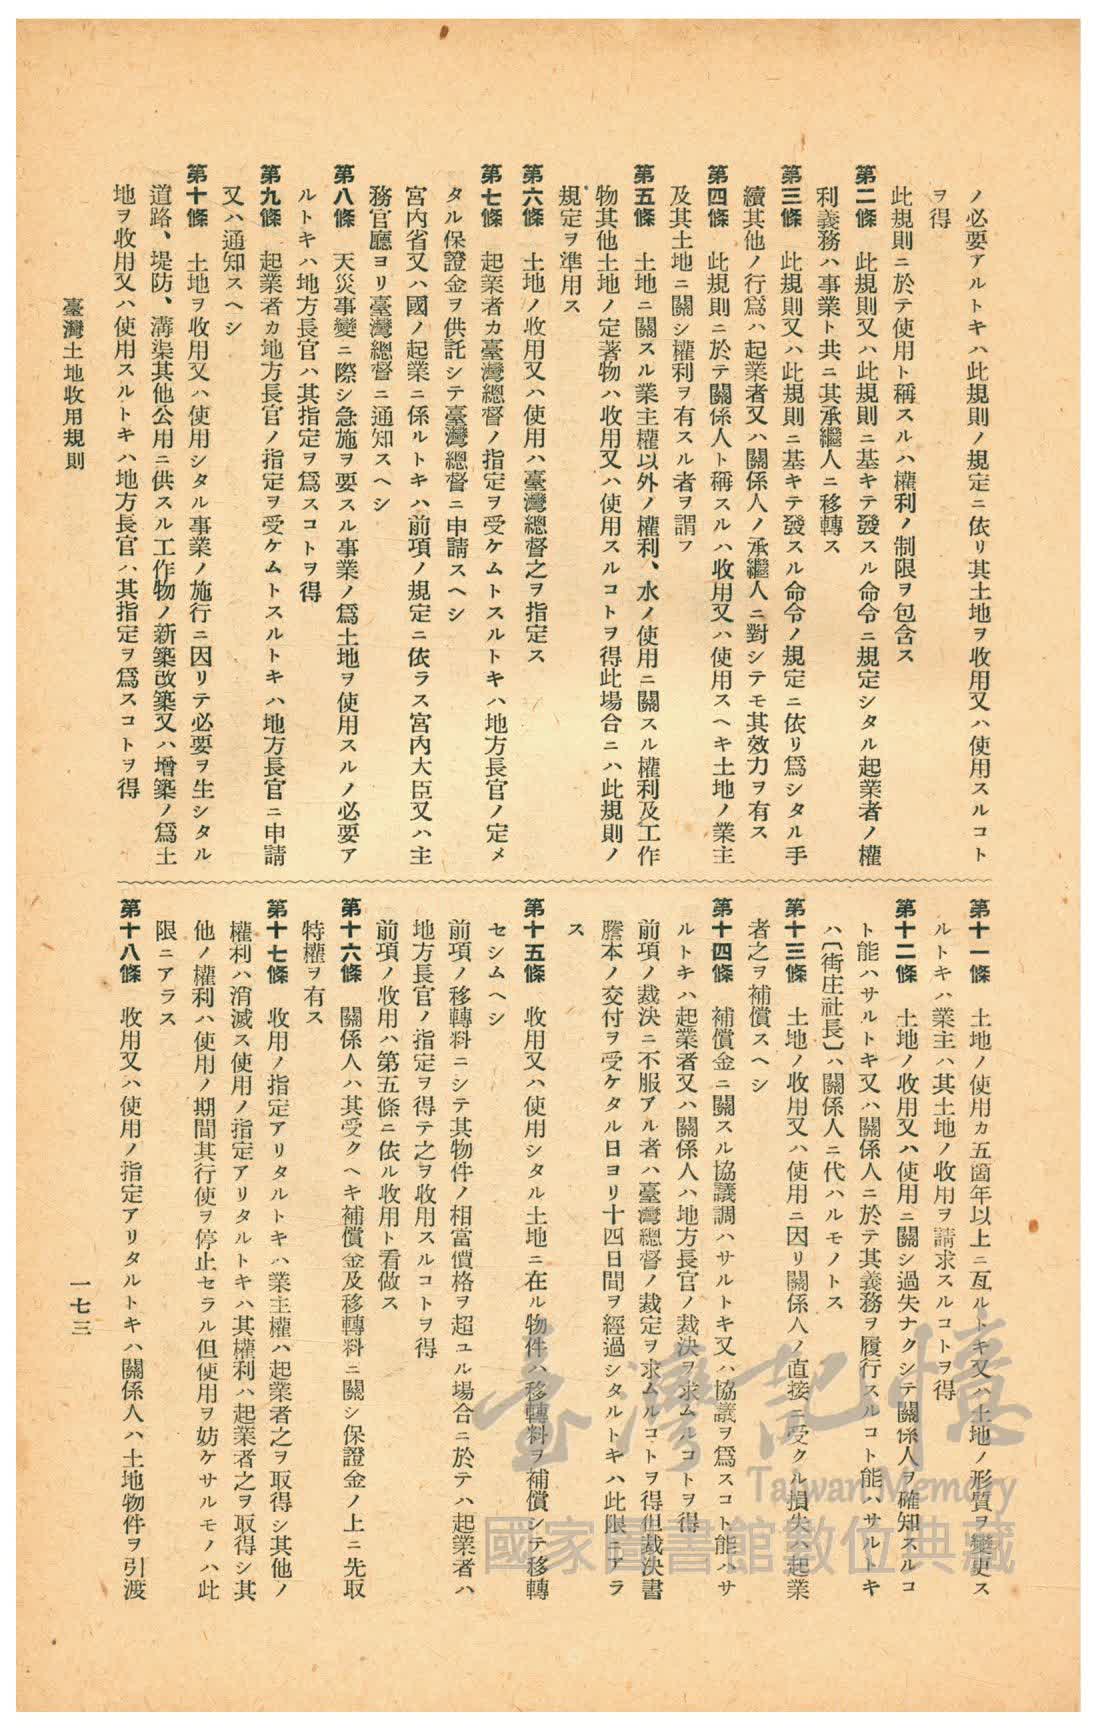 ノ必要アルトキハ此規則ノ規定ニ依リ其土地ヲ收用又ハ使用スルコト
ヲ得
此規則ニ於テ使用ト稱スルハ權利ノ制限ヲ包含ス
第二條　此規則又ハ此規則ニ基キテ發スル命令ニ規定シタル起業者ノ權
利義務ハ事業ト共ニ其承繼人ニ移轉ス
第三條　此規則又ハ此規則ニ基キテ發スル命令ノ規定ニ依リ爲シタル手
續其他ノ行爲ハ起業者又ハ關係人ノ承繼人ニ對シテモ其效力ヲ有ス
第四條　此規則ニ於テ關係人ト稱スルハ收用又ハ使用スヘキ土地ノ業主
及其土地ニ關シ權利ヲ有スル者ヲ謂フ
第五條　土地ニ關スル業主權以外ノ權利、水ノ使用ニ關スル權利及工作
物其他土地ノ定著物ハ收用又ハ使用スルコトヲ得此場合ニハ此規則ノ
規定ヲ準用ス
第六條　土地ノ收用又ハ使用ハ臺灣總督之ヲ指定ス
第七條　起業者カ臺灣總督ノ指定ヲ受ケムトスルトキハ地方長官ノ定メ
タル保證金ヲ供託シテ臺灣總督ニ申請スヘシ
宮內省又ハ國ノ起業ニ係ルトキハ前項ノ規定ニ依ラス宮內大臣又ハ主
務官廳ヨリ臺灣總督ニ通知スヘシ
第八條　天災事變ニ際シ急施ヲ要スル事業ノ爲土地ヲ使用スルノ必要ア
ルトキハ地方長官ハ其指定ヲ爲スコトヲ得
第九條　起業者カ地方長官ノ指定ヲ受ケムトスルトキハ地方長官ニ申請
又ハ通知スヘシ
第十條　土地ヲ收用又ハ使用シタル事業ノ施行ニ因リテ必要ヲ生シタル
道路、堤防、溝渠其他公用ニ供スル工作物ノ新築改築又ハ增築ノ爲土
地ヲ收用又ハ使用スルトキハ地方長官ハ其指定ヲ爲スコトヲ得
第十一條　土地ノ使用カ五箇年以上ニ亙ルトキ又ハ土地ノ形質ヲ變更ス
ルトキハ業主ハ其土地ノ收用ヲ請求スルコトヲ得
第十二條　土地ノ收用又ハ使用ニ關シ過失ナクシテ關係人ヲ確知スルコ
ト能ハサルトキ又ハ關係人ニ於テ其義務ヲ履行スルコト能ハサルトキ
ハ〔街庄社長〕ハ關係人ニ代ハルモノトス
第十三條　土地ノ收用又ハ使用ニ因リ關係人ノ直接ニ受クル損失ハ起業
者之ヲ補償スヘシ
第十四條　補償金ニ關スル協議調ハサルトキ又ハ協議ヲ爲スコト能ハサ
ルトキハ起業者又ハ關係人ハ地方長官ノ裁決ヲ求ムルコトヲ得
前項ノ裁決ニ不服アル者ハ臺灣總督ノ裁定ヲ求ムルコトヲ得但裁決書
謄本ノ交付ヲ受ケタル日ヨリ十四日間ヲ經過シタルトキハ此限ニアラ
ス
第十五條　收用又ハ使用シタル土地ニ在ル物件ハ移轉料ヲ補償シテ移轉
セシムヘシ
前項ノ移轉料ニシテ其物件ノ相當價格ヲ超ユル場合ニ於テハ起業者ハ
地方長官ノ指定ヲ得テ之ヲ收用スルコトヲ得
前項ノ收用ハ第五條ニ依ル收用ト看做ス
第十六條　關係人ハ其受クヘキ補償金及移轉料ニ關シ保證金ノ上ニ先取
特權ヲ有ス
第十七條　收用ノ指定アリタルトキハ業主權ハ起業者之ヲ取得シ其他ノ
權利ハ消滅ス使用ノ指定アリタルトキハ其權利ハ起業者之ヲ取得シ其
他ノ權利ハ使用ノ期間其行使ヲ停止セラル但使用ヲ妨ケサルモノハ此
限ニアラス
第十八條　收用又ハ使用ノ指定アリタルトキハ關係人ハ土地物件ヲ引渡
臺灣土地收用規則
一七三
臺灣記憶
Taiwan Memory
國家圖書館數位典藏